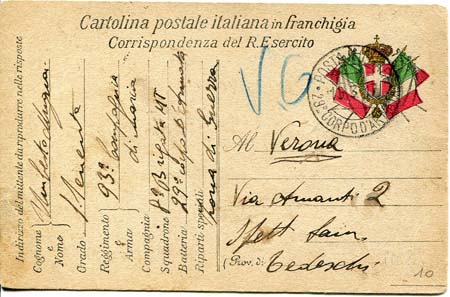 Cartolina postale italiana in franchigia
Corrispondenza del R. Esercito
VG
POSTA M
29° CORPO D'A
Indirizzo del mittente da riprodurre nelle risposte
Cognome e Nome Umberto
Grado S. Tenente
Reggimento 93ª Compagnia
Arma di marcia
Compagnia
Squadrone 8ª Brigata MT
Batteria 29° Corpo d'Armata
Riparti speciali zona di Guerra
Al Verona
Via Amanti 2
Spett fam.
(Prov. di) Tedeschi
10